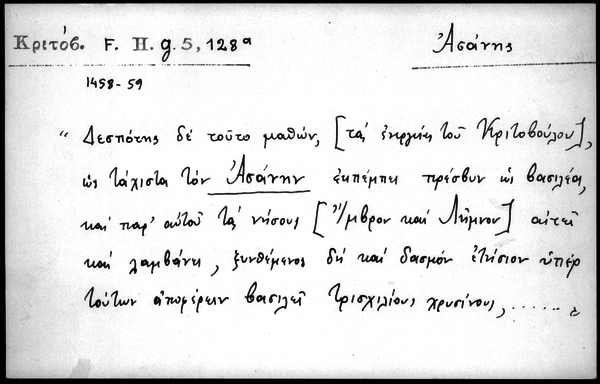 Κριτόβ. F. H. g. 5, 128ᵃ
Ἀσάνης
1458-59
“ Δεσπότης δέ τοῦτο μαθών, [τάς ἐνεργείας τοῦ Κριτοβούλου],
ὡς τάχιστα τόν Ἀσάνην ἐκπέμπει πρέσβυν ὡς βασιλέα,
καί παρ' αὐτοῦ τάς νήσους [Ἴμβρον καί Λῆμνον] αἰτεῖ
καί λαμβάνει, ξυνθέμενος δή καί δασμόν ἐτήσιον ὑπέρ
τούτων ἀποφέρειν βασιλεῖ τρισχιλίους χρυσίνους, ......